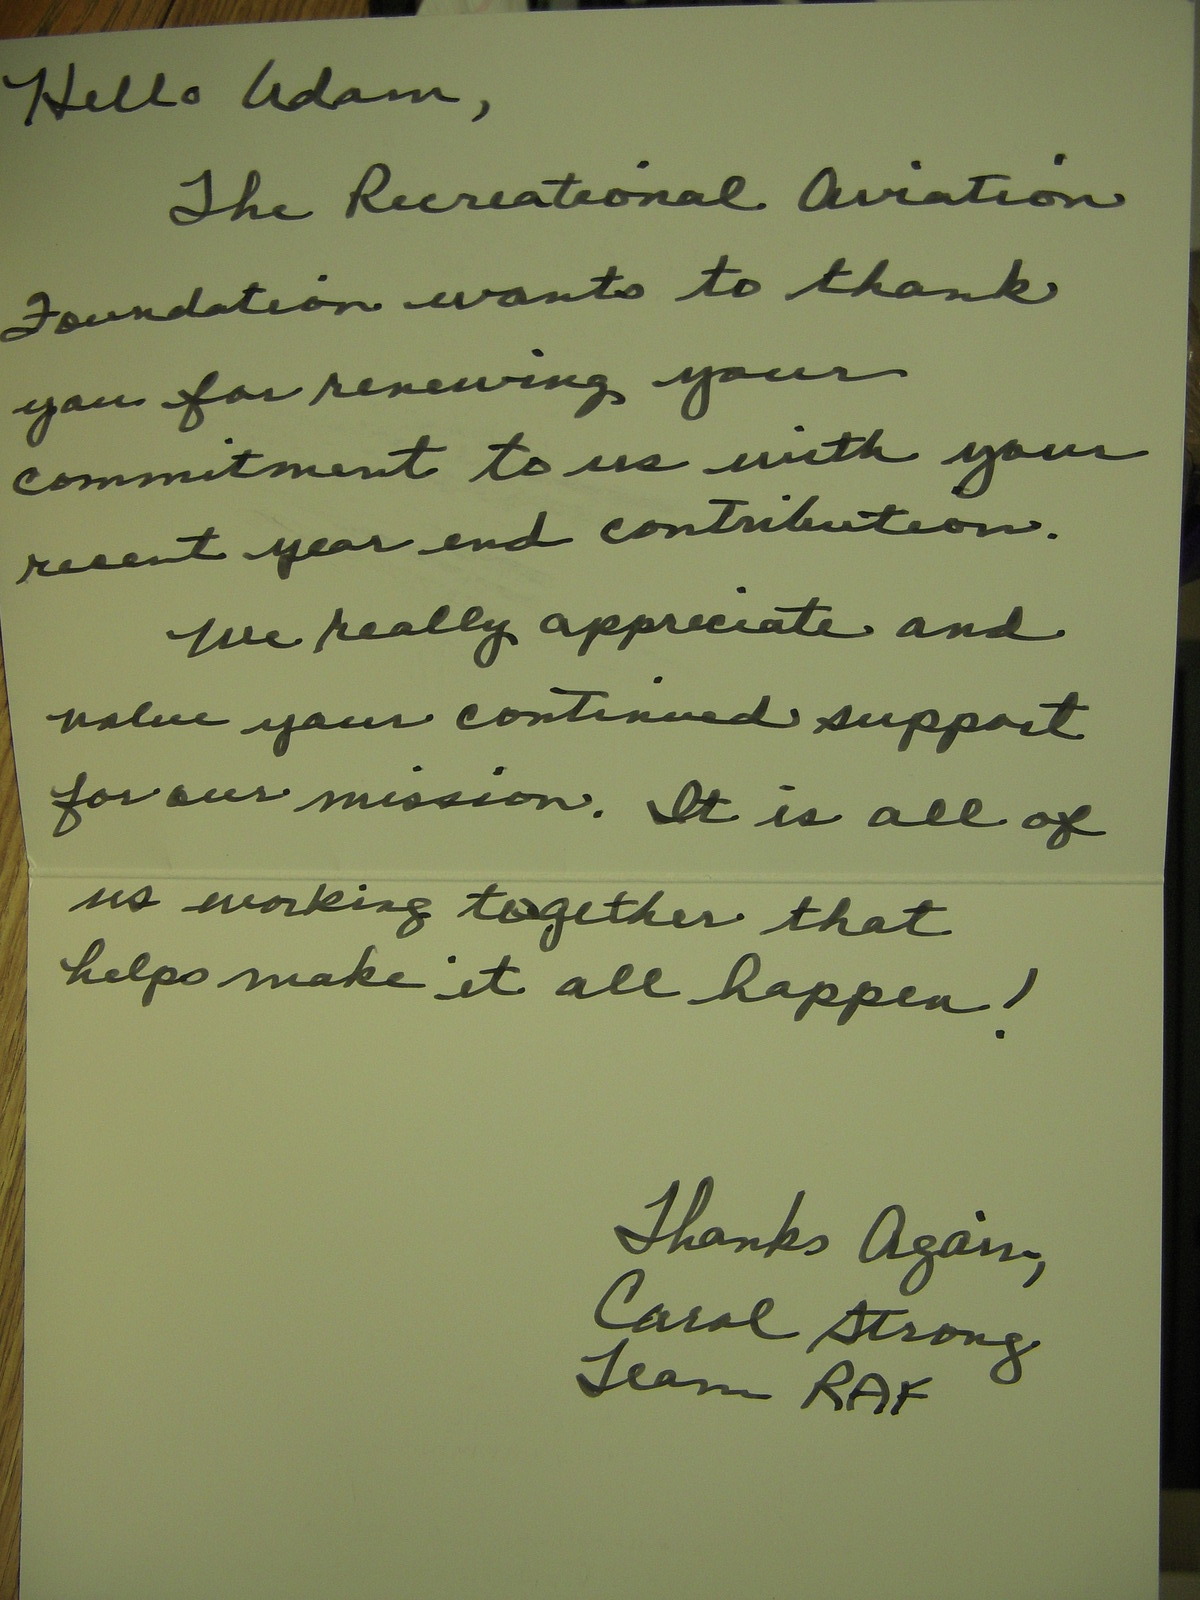 Hello Adam,
The Recreational Aviation
Foundation wants to thank
you for renewing your
commitment to us with your
recent year end contribution.
We really appreciate and
value your continued support
for our mission. It is all of
us working together that
helps make it all happen!
Thanks Again,
Carol Strong
Team RAF